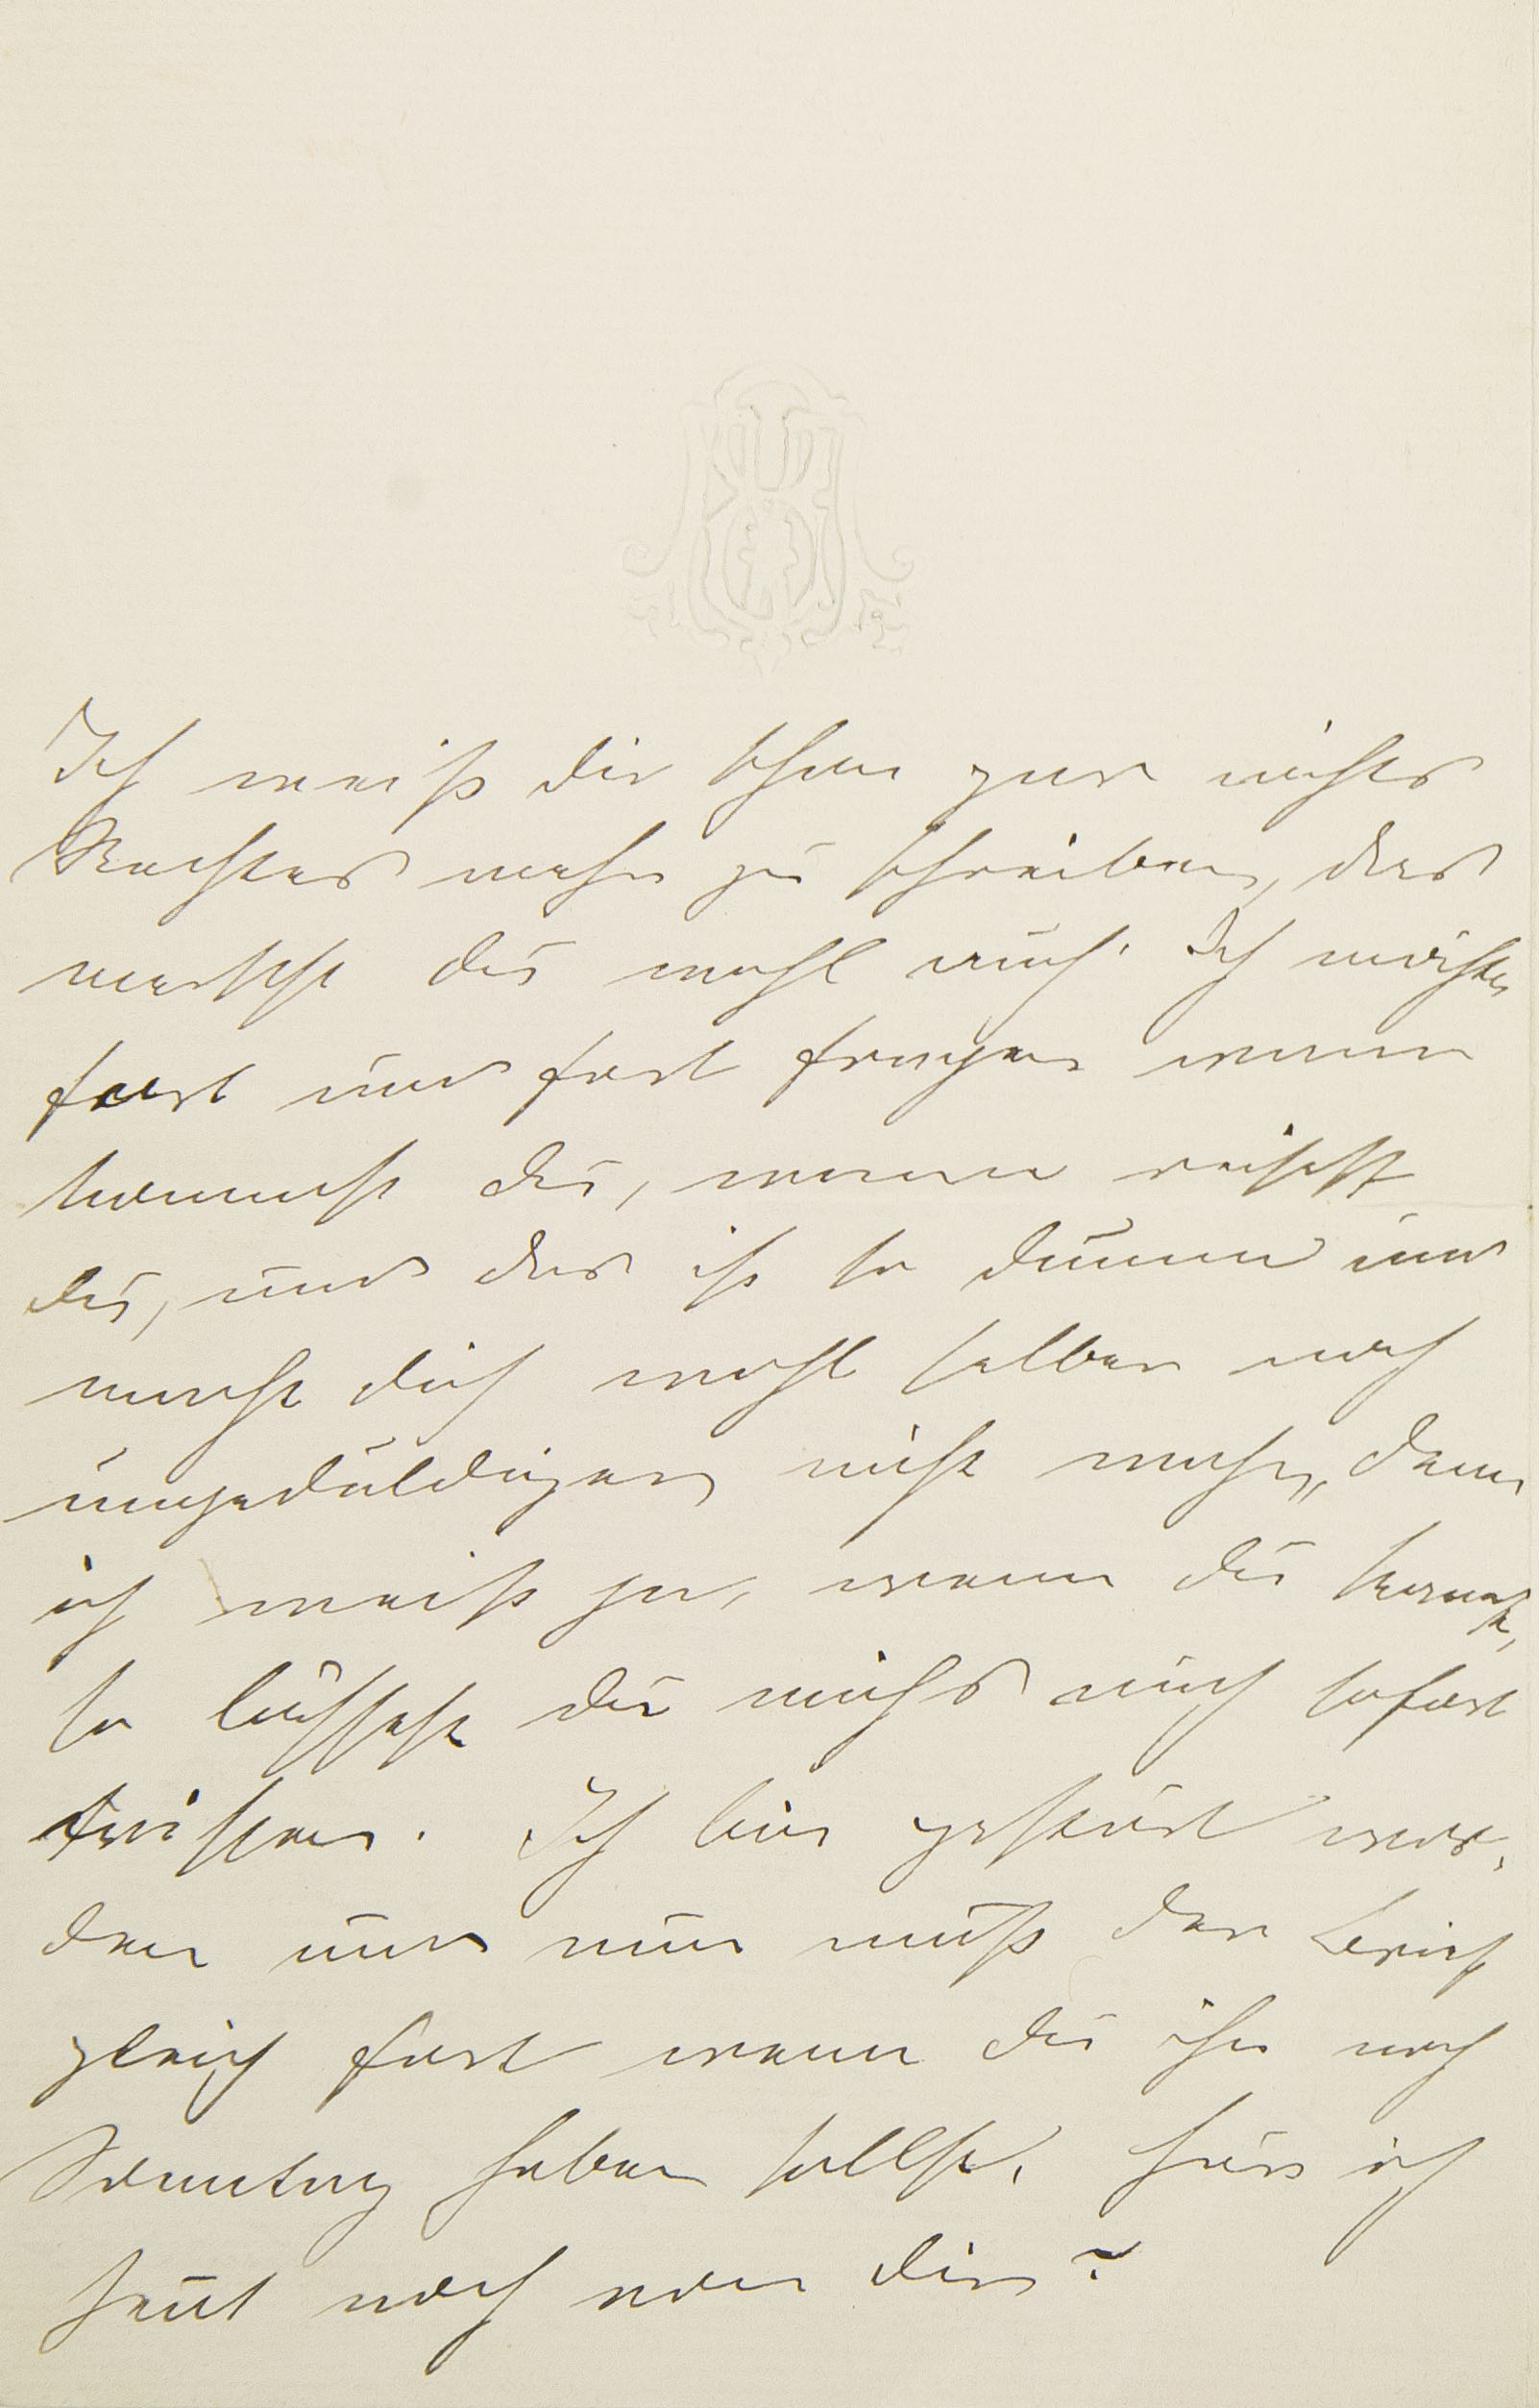 Ich weiß dir schon gar nichts
Rechtes mehr zu schreiben, das
merkst du wohl auch. Ich möchte
fort und fort fragen wann
kommst du, wann reisest
du, und das ist so dumm und
macht dich wohl selber noch
ungeduldiger nicht wahr, denn
ich weiß ja, wenn du kommst,
so lässest du mich's auch sofort
wissen. Ich bin gestört wor-
den und nun muß der Brief
gleich fort wenn du ihn noch
Sonntag haben sollst. Hör ich
heut noch von dir?